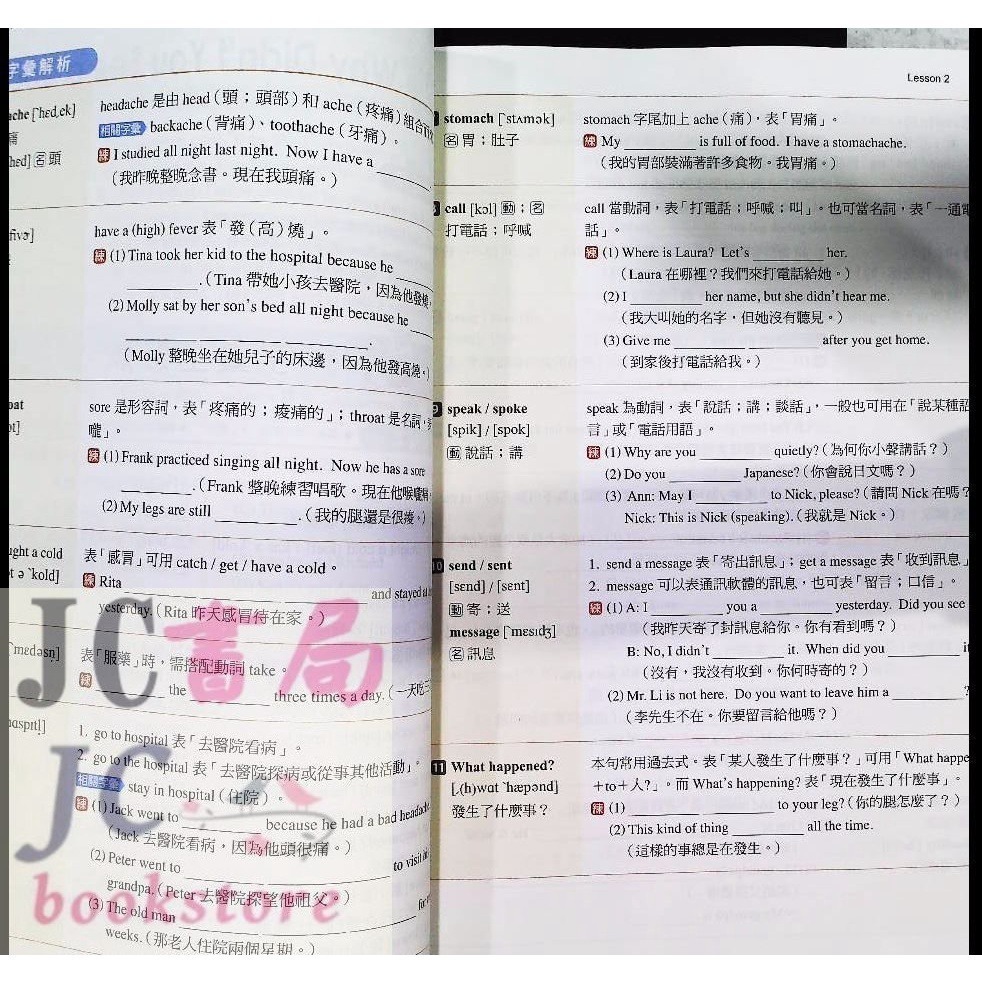 字彙解析
ache [ˋhɛd͵ek]
痛
hɛd] 名 頭
headache 是由 head（頭；頭部）和 ache（疼痛）組合
相關字彙 backache（背痛）、toothache（牙痛）。
練 I studied all night last night. Now I have a ________.
（我昨晚整晚念書。現在我頭痛。）
fivɚ]
have a (high) fever 表「發（高）燒」。
練 (1) Tina took her kid to the hospital because he ________
________.（Tina 帶她小孩去醫院，因為他發燒
(2) Molly sat by her son's bed all night because he ________
________ ________ ________
（Molly 整晚坐在她兒子的床邊，因為他發高燒。）
oat
sore 是形容詞，表「疼痛的；痠痛的」；throat 是名詞，
嚨」。
練 (1) Frank practiced singing all night. Now he has a sore
________.（Frank 整晚練習唱歌。現在他喉嚨痛
(2) My legs are still ________.（我的腿還是很痠。）
ught a cold
ə ˋkold]
表「感冒」可用 catch / get / have a cold。
練 Rita ________ and stayed at
yesterday.（Rita 昨天感冒待在家。）
ˋmɛdəsn̩]
表「服藥」時，需搭配動詞 take。
練 ________ the ________ three times a day.（一天吃三
ɑspɪtl̩]
1. go to hospital 表「去醫院看病」。
2. go to the hospital 表「去醫院探病或從事其他活動」。
相關字彙 stay in hospital（住院）。
練 (1) Jack went to ________ because he had a bad headache
（Jack 去醫院看病，因為他頭很痛。）
(2) Peter went to ________ to visit
grandpa.（Peter 去醫院探望他祖父。）
(3) The old man ________ for
weeks.（那老人住院兩個星期。）
Lesson 2
stomach [ˋstʌmək]
名 胃；肚子
stomach 字尾加上 ache（痛），表「胃痛」。
練 My ________ is full of food. I have a stomachache.
（我的胃部裝滿著許多食物。我胃痛。）
call [kɔl] 動；名
打電話；呼喊
call 當動詞，表「打電話；呼喊；叫」。也可當名詞，表「一通電
話」。
練 (1) Where is Laura? Let's ________ her.
（Laura 在哪裡？我們來打電話給她。）
(2) I ________ her name, but she didn't hear me.
（我大叫她的名字，但她沒有聽見。）
(3) Give me ________ ________ after you get home.
（到家後打電話給我。）
9 speak / spoke
[spik] / [spok]
動 說話；講
speak 為動詞，表「說話；講；談話」，一般也可用在「說某種語
言」或「電話用語」。
練 (1) Why are you ________ quietly?（為何你小聲講話？）
(2) Do you ________ Japanese?（你會說日文嗎？）
(3) Ann: May I ________ to Nick, please?（請問 Nick 在嗎？
Nick: This is Nick (speaking).（我就是 Nick。）
10 send / sent
[sɛnd] / [sɛnt]
動 寄；送
message [ˋmɛsɪdʒ]
名 訊息
1. send a message 表「寄出訊息」；get a message 表「收到訊息」
2. message 可以表通訊軟體的訊息，也可表「留言；口信」。
練 (1) A: I ________ you a ________ yesterday. Did you see
（我昨天寄了封訊息給你。你有看到嗎？）
B: No, I didn't ________ it. When did you ________ it
（沒有，我沒有收到。你何時寄的？）
(2) Mr. Li is not here. Do you want to leave him a ________?
（李先生不在。你要留言給他嗎？）
11 What happened?
[͵(h)wɑt ˋhæpənd]
發生了什麼事？
本句常用過去式。表「某人發生了什麼事？」可用「What happe
+to+人?」。而 What's happening? 表「現在發生了什麼事」。
練 (1) ________ ________ to your leg?（你的腿怎麼了？）
(2) This kind of thing ________ all the time.
（這樣的事總是在發生。）
JC書局
JC
bookstore